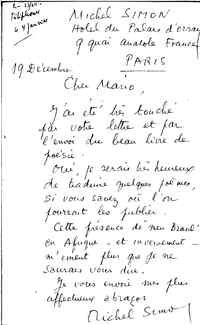 Téléphoné
Michel SIMON
Hotel du Palais d'orsay
9 quai anatole France
PARIS
19 Décembre
Cher Mario,
J'ai été très touché
par votre lettre et par
l'envoi du beau livre de
poésie.
Oui, je serais très heureux
de traduire quelques poèmes,
si vous savez où l'on
pourrait les publier.
Cette présence de
en Afrique - et inversement -
m'émeut plus que je ne
saurais vous dire.
Je vous envoie mes plus
affectueux abraços
Michel Simon